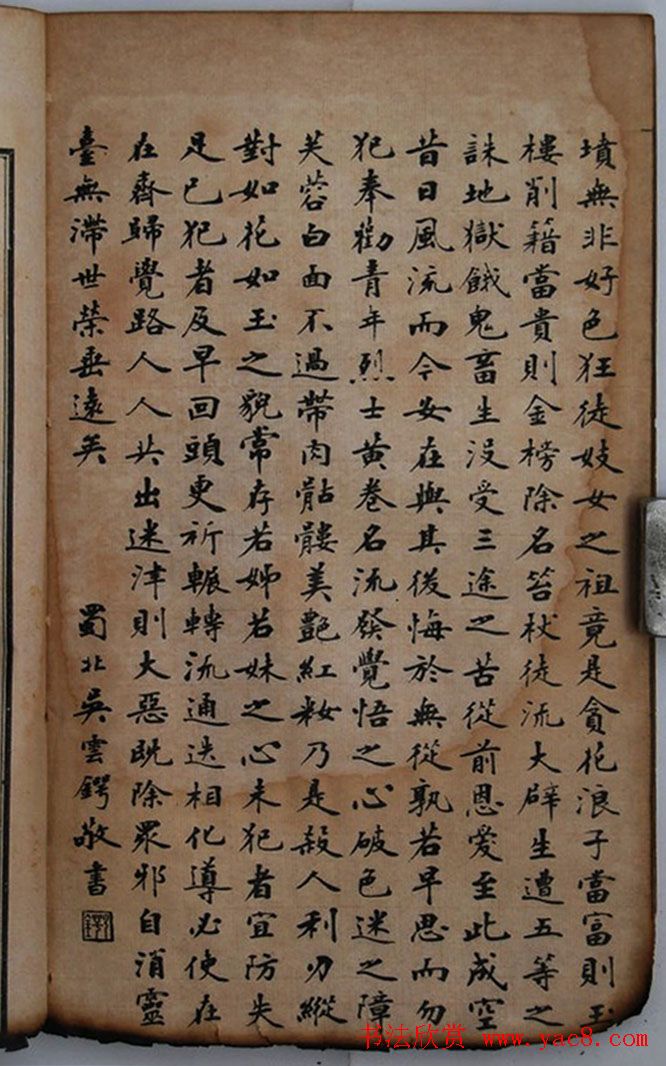 墳無非好色狂徒妓女之祖竟是貪花浪子當富則玉
樓削籍當貴則金榜除名笞杖徒流大辟生遭五等之
誅地獄餓鬼畜生沒受三途之苦從前恩愛至此成空
昔日風流而今安在與其後悔於無從孰若早思而勿
犯奉勸青年烈士黃卷名流發覺悟之心破色迷之障
芙蓉白面不過帶肉骷髏美艷紅粧乃是殺人利刃縱
對如花如玉之貌常存若姊若妹之心未犯者宜防失
足已犯者及早回頭更祈輾轉流通迭相化導必使在
在齊歸覺路人人共出迷津則大惡既除眾邪自消靈
臺無滯世榮垂遠矣
蜀北吳雲鍔敬書
书法欣赏 www.yac8.com